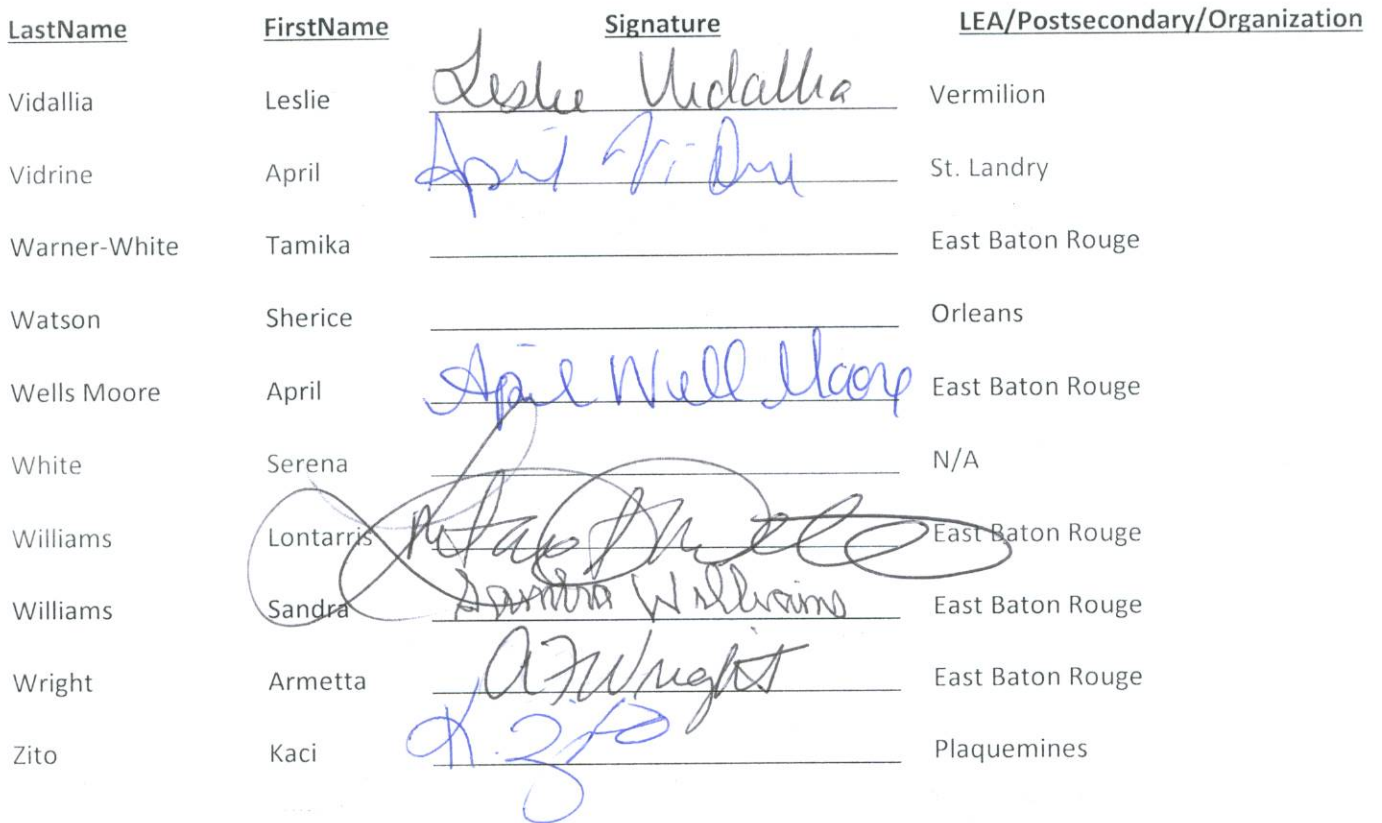 LastName FirstName Signature LEA/Postsecondary/Organization
Vidallia Leslie Leslie Vidallia Vermilion
Vidrine April April Vidrine St. Landry
Warner-White Tamika East Baton Rouge
Watson Sherice Orleans
Wells Moore April April Well Moore East Baton Rouge
White Serena N/A
Williams Lontarris East Baton Rouge
Williams Sandra Sandra Williams East Baton Rouge
Wright Armetta A F Wright East Baton Rouge
Zito Kaci K. Zito Plaquemines